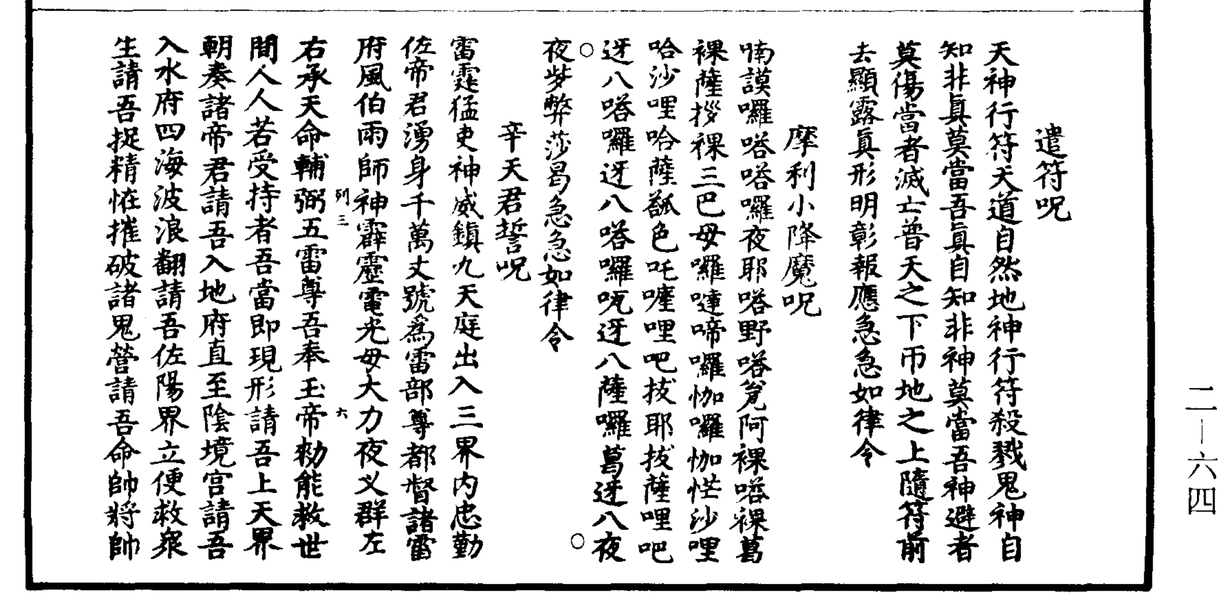 遣符呪
天神行符天道自然地神行符殺戮鬼神自
知非真莫當吾真自知非神莫當吾神避者
莫傷當者滅亡普天之下帀地之上隨符前
去顯露真形明彰報應急急如律令
摩利小降魔呪
喃謨囉嗒嗒囉夜耶嗒野嗒覓阿裸嗒裸葛
裸薩拶裸三巴母囉嗹啼囉怭囉怭恾沙哩
哈沙哩哈薩㼎色吒嚾哩吧拔耶拔薩哩吧
迓八嗒囉迓八嗒囉㕮迓八薩囉葛迓八夜
○ ○
夜㱔弊莎曷急急如律令
辛天君誓呪
雷霆猛吏神威鎮九天庭出入三界内忠勤
佐帝君湧身千萬丈號為雷部尊都督諸雷
府風伯雨師神霹靂電光母大力夜义群左
列三 六
右承天命輔弼五雷尊吾奉玉帝勑能救世
間人人若受持者吾當即現形請吾上天界
朝奏諸帝君請吾入地府直至陰境宫請吾
入水府四海波浪翻請吾佐陽界立便救衆
生請吾捉精恠摧破諸鬼營請吾命帥將帥
二—六四